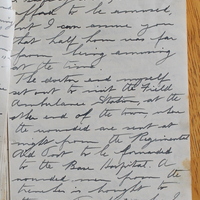 afford to be amused,
but I can assure you
that half hour was far
from being amusing
at the time.
The doctor and myself
set out to visit the Field
Ambulance Station, at the
other end of the town, where
the wounded are sent at
night from the Regimental
Aid Post to be forwarded
to the Base Hospital. A
wounded man from the
trenches is brought to